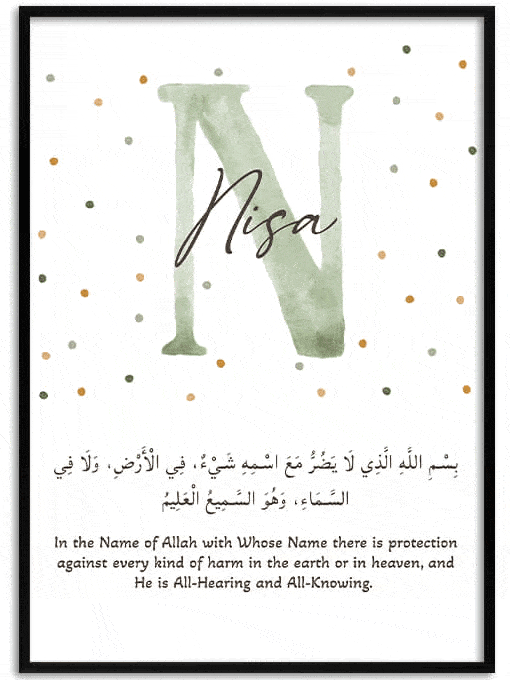 N
Nisa
بِسْمِ اللَّهِ الَّذِي لَا يَضُرُّ مَعَ اسْمِهِ شَيْءٌ، فِي الْأَرْضِ، وَلَا فِي
السَّمَاءِ، وَهُوَ السَّمِيعُ الْعَلِيمُ
In the Name of Allah with Whose Name there is protection
against every kind of harm in the earth or in heaven, and
He is All-Hearing and All-Knowing.